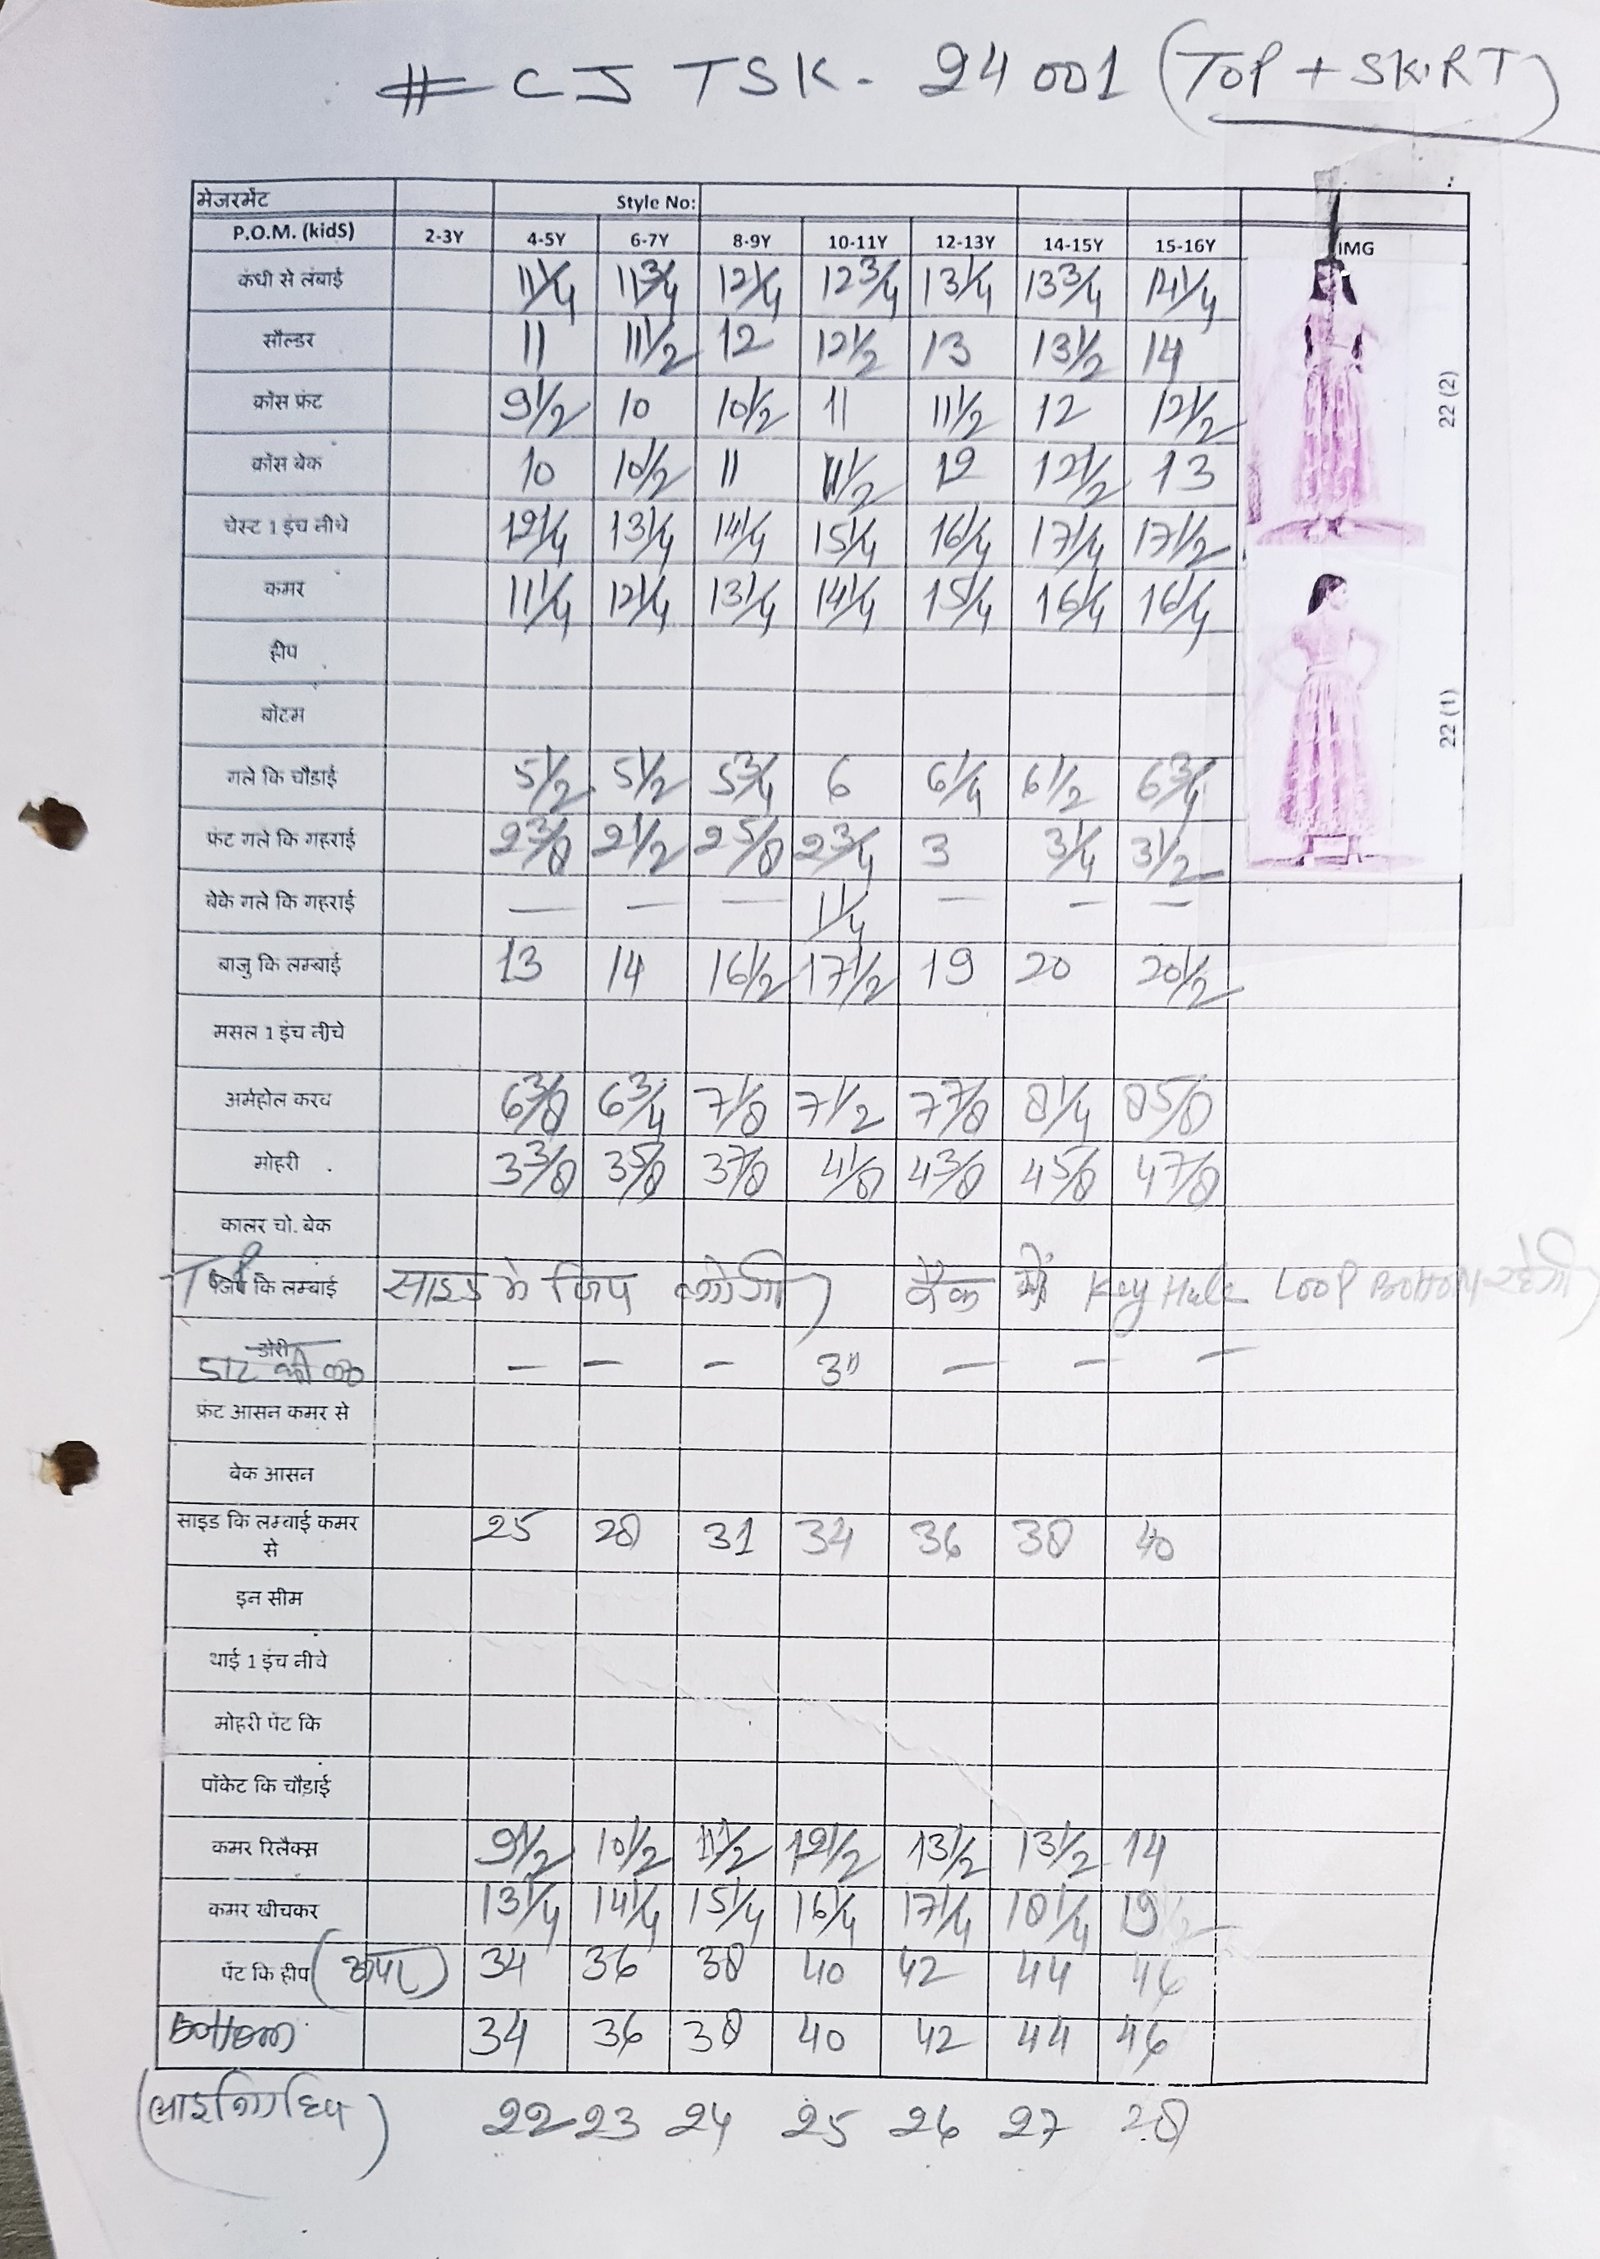 # CJ TSK - 24001 (TOP + SKIRT)
मेजरमेंट Style No:
P.O.M. (kidS) 2-3Y 4-5Y 6-7Y 8-9Y 10-11Y 12-13Y 14-15Y 15-16Y IMG
कंधी से लंबाई 11 1/4 11 3/4 12 1/4 12 3/4 13 1/4 13 3/4 14 1/4
सौल्डर 11 11 1/2 12 12 1/2 13 13 1/2 14
क्रोस फ्रंट 9 1/2 10 10 1/2 11 11 1/2 12 12 1/2
22 (2)
क्रोस बेक 10 10 1/2 11 11 1/2 12 12 1/2 13
चेस्ट 1 इंच नीचे 12 1/4 13 1/4 14 1/4 15 1/4 16 1/4 17 1/4 17 1/2
कमर 11 1/4 12 1/4 13 1/4 14 1/4 15 1/4 16 1/4 16 1/4
हीप
बोटम
22 (1)
गले कि चौडाई 5 1/2 5 1/2 5 3/4 6 6 1/4 6 1/2 6 3/4
फ्रंट गले कि गहराई 2 3/8 2 1/2 2 5/8 2 3/4 3 3 1/4 3 1/2
बेके गले कि गहराई — — — 1 1/4 — — —
बाजु कि लम्बाई 13 14 16 1/2 17 1/2 19 20 20 1/2
मसल 1 इंच नीचे
अर्महोल करव 6 3/8 6 3/4 7 1/8 7 1/2 7 7/8 8 1/4 8 5/8
मोहरी 3 3/8 3 5/8 3 7/8 4 1/8 4 3/8 4 5/8 4 7/8
कालर चो. बेक
Top जिप कि लम्बाई साइड मे जिप लगेगी) बैक में Key Hole Loop Bottom रहेगी)
डोरी
डाट की — — — 3" — — —
फ्रंट आसन कमर से
बेक आसन
साइड कि लम्बाई कमर 25 28 31 34 36 38 40
से
इन सीम
थाई 1 इंच नीचे
मोहरी पेंट कि
पॉकेट कि चौडाई
कमर रिलैक्स 9 1/2 10 1/2 11 1/2 12 1/2 13 1/2 13 1/2 14
कमर खीचकर 13 1/4 14 1/4 15 1/4 16 1/4 17 1/4 18 1/4 19
पेंट कि हीप 34 36 38 40 42 44 46
Bottom 34 36 38 40 42 44 46
(लाइनिंग हिप) 22 23 24 25 26 27 28